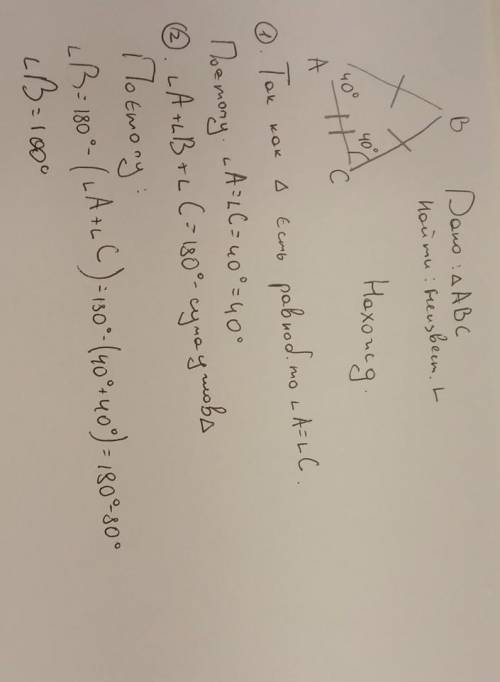 Дано: △ABC
Найти: неизвест. ∟
Находж.
B
A
40°
40°
C
①. Так как △ есть равноб. то ∟A=∟C.
Поєтому. ∟A=∟C=40°=40°
②. ∟A+∟B+∟C=180°-сума углов △
Поєтому:
∟B=180°-(∟A+∟C)=180°-(40°+40°)=180°-80°
∟B=100°